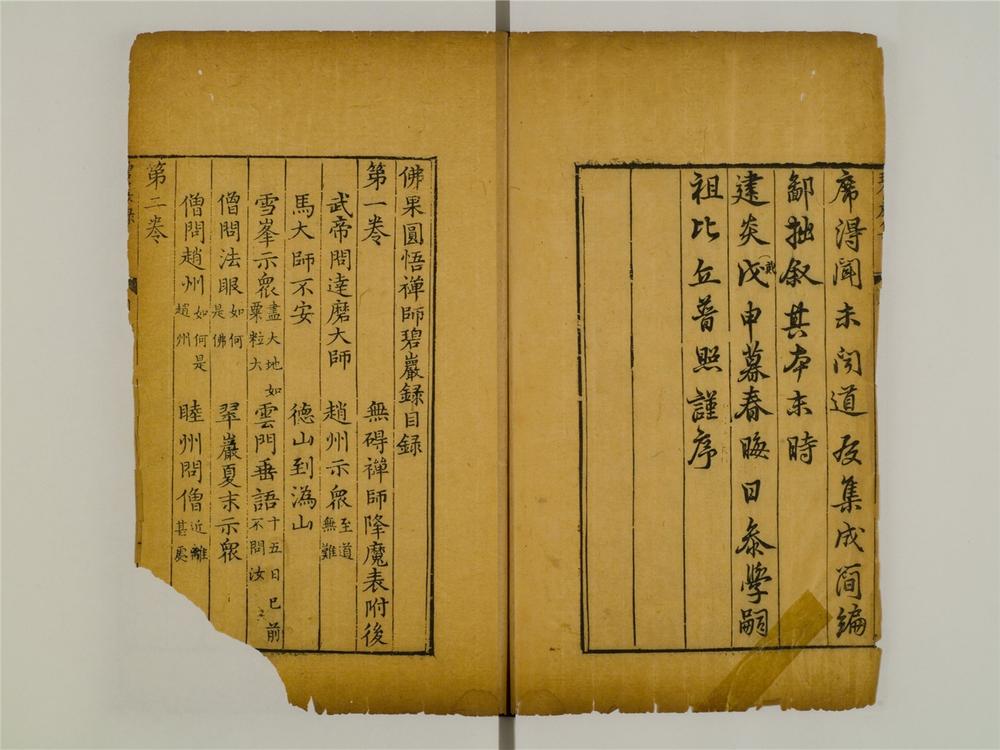 席得聞未聞道友集成簡編
鄙拙叙其本末時
建炎戊申暮春晦日叅學嗣
祖比丘普照謹序
佛果圓悟禪師碧巖録目録
第一卷 無碍禪師降魔表附後
武帝問達磨大師 趙州示衆至道無難
馬大師不安 德山到潙山
雪峯示衆盡大地如粟粒大 雲門垂語十五日已前不問汝
僧問法眼如何是佛 翠巖夏末示衆
僧問趙州如何是趙州 睦州問僧近離甚處
第二卷